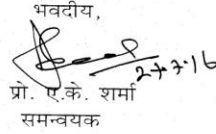 भवदीय,
27.7.16
प्रो. ए.के. शर्मा
समन्वयक